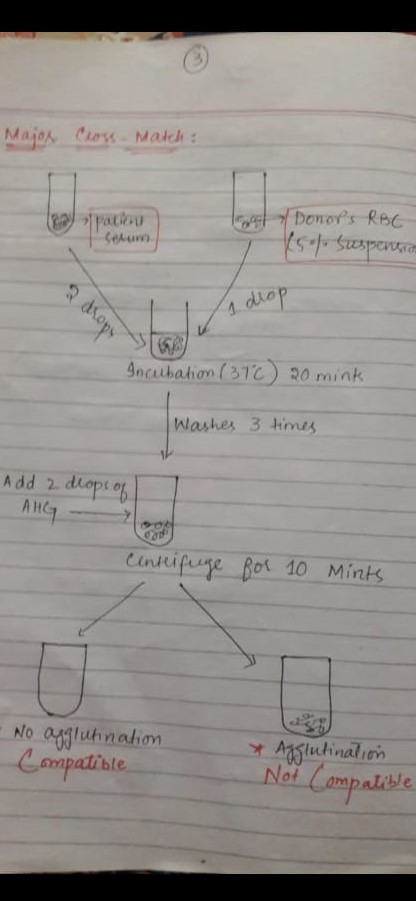 3
Major Cross-Match:
Patient
Serum
Donor's RBC
(5% Suspension
2 drops
1 drop
Incubation (37°C) 20 mints
Washes 3 times
Add 2 drops of
AHG
Centrifuge for 10 Mints
No agglutination
Compatible
* Agglutination
Not Compatible